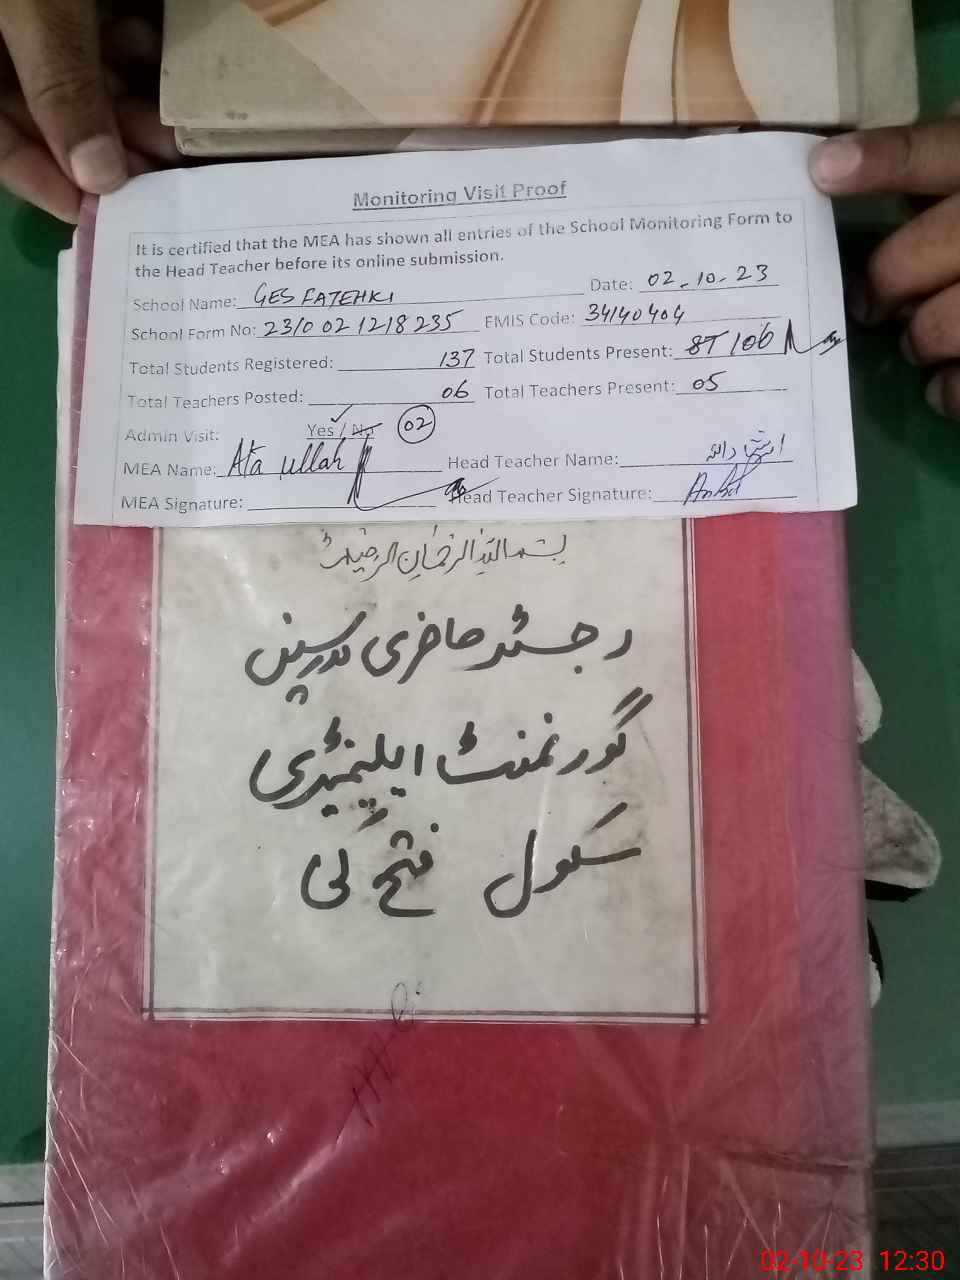 Monitoring Visit Proof
It is certified that the MEA has shown all entries of the School Monitoring Form to
the Head Teacher before its online submission.
School Name: GES FATEHKI Date: 02-10-23
School Form No: 231002 1218235 EMIS Code: 34140404
Total Students Registered: 137 Total Students Present: 106
Total Teachers Posted: 06 Total Teachers Present: 05
Admin Visit: Yes / No 02
MEA Name: Ata ullah Head Teacher Name:
MEA Signature: Head Teacher Signature:
بسم اللہ الرحمٰن الرحیم
رجسٹر حاضری مدرسین
گورنمنٹ ایلیمنٹری
سکول فتح کی
02-10-23 12:30